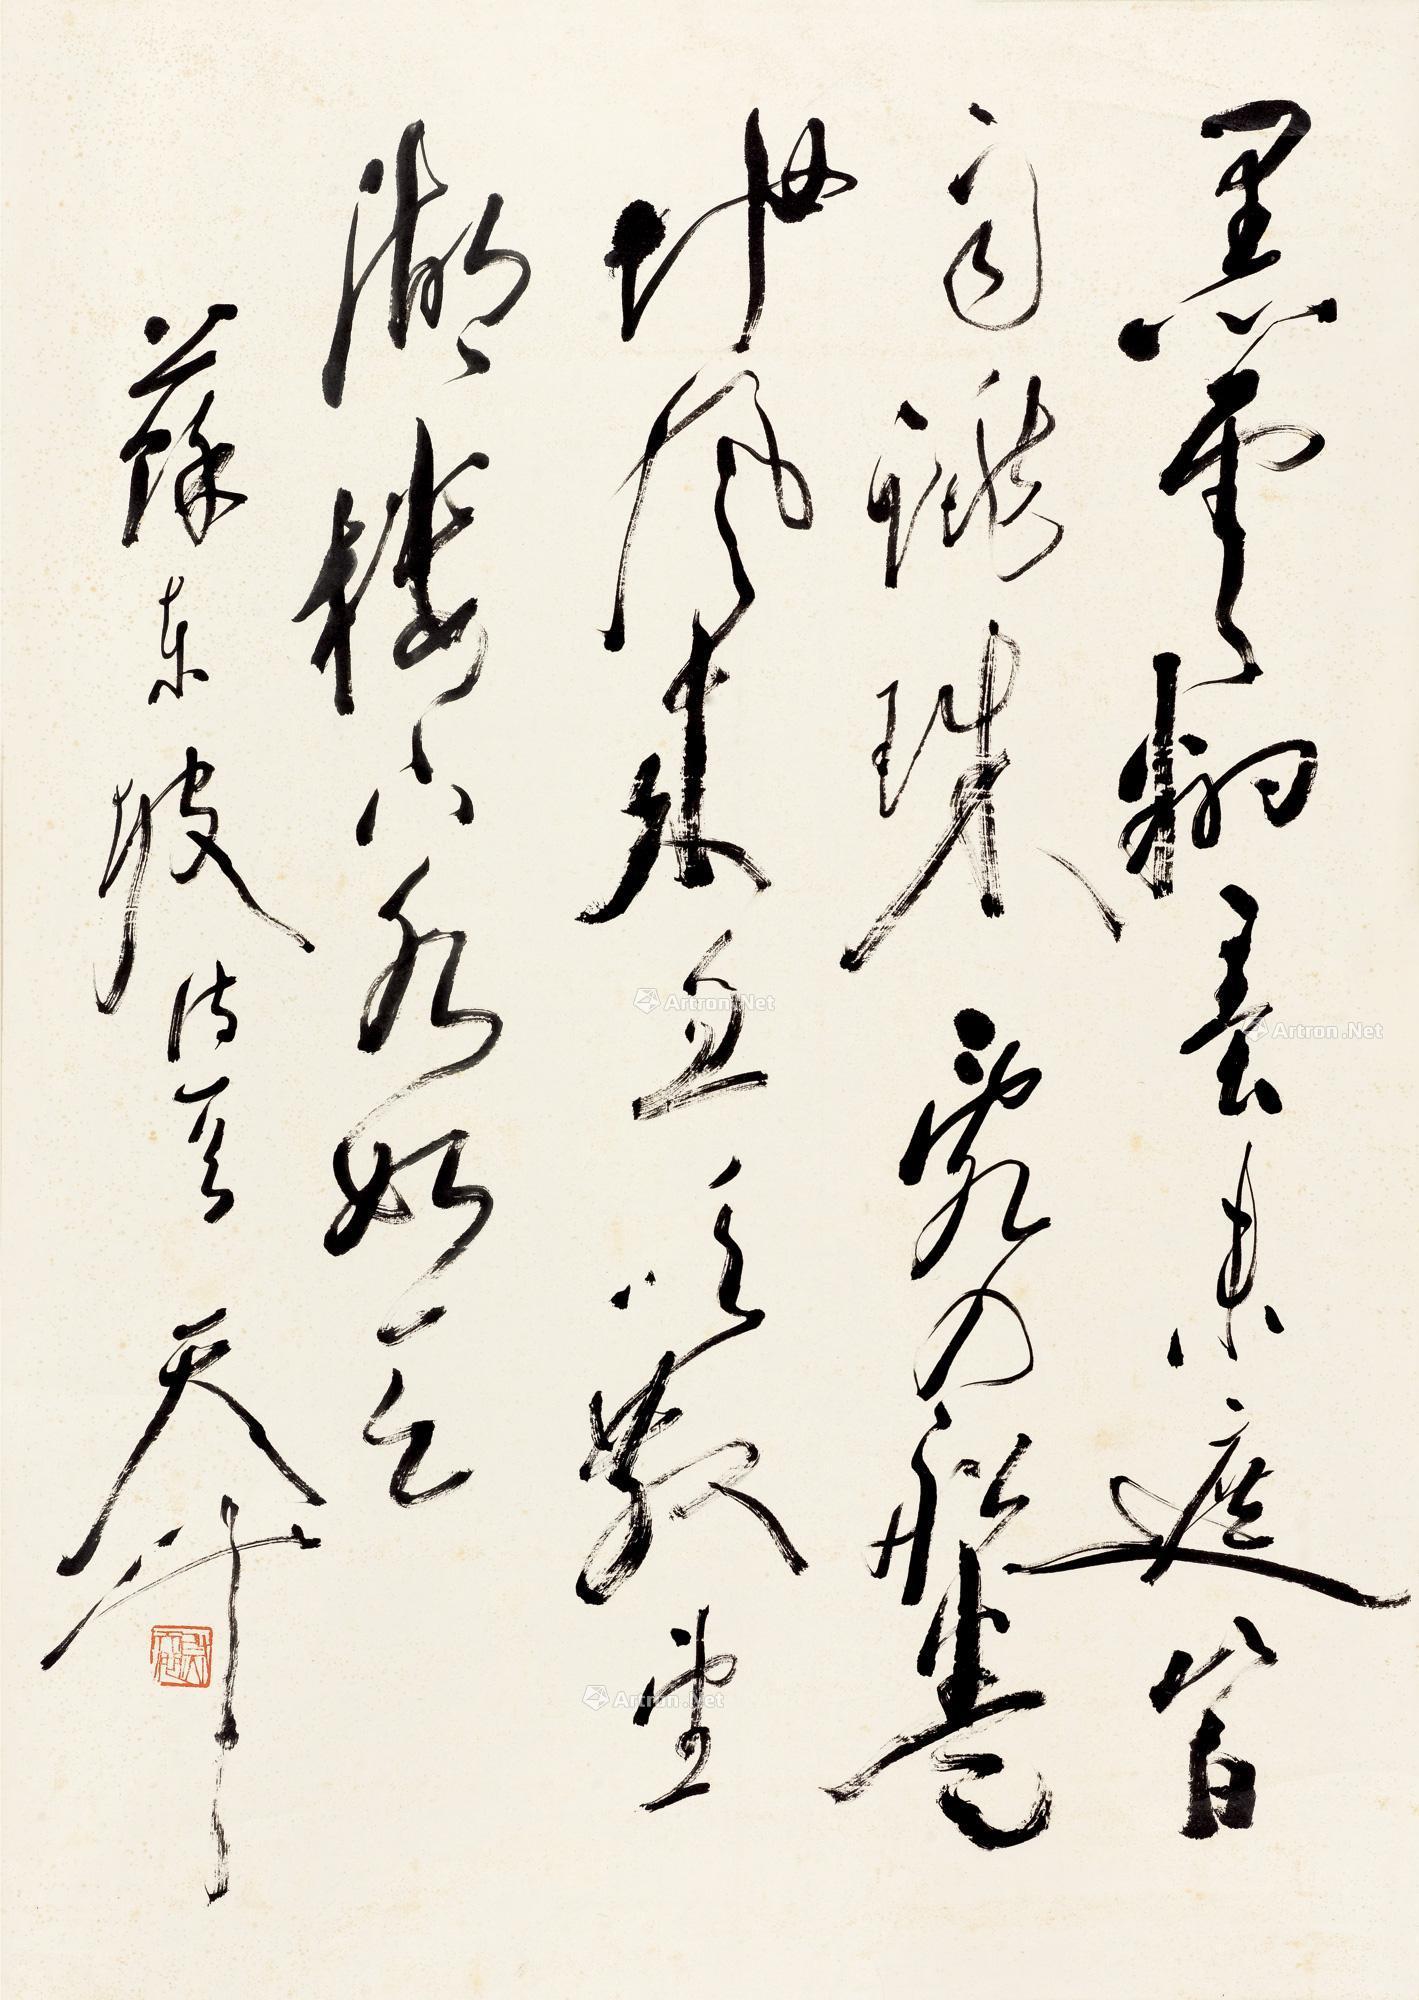 黑雲翻墨未遮山白
雨跳珠亂入船卷
地風來忽吹散望
湖樓下水如天
蘇東坡詩一首 天池
Artron.Net
Artron.Net
Artron.Net